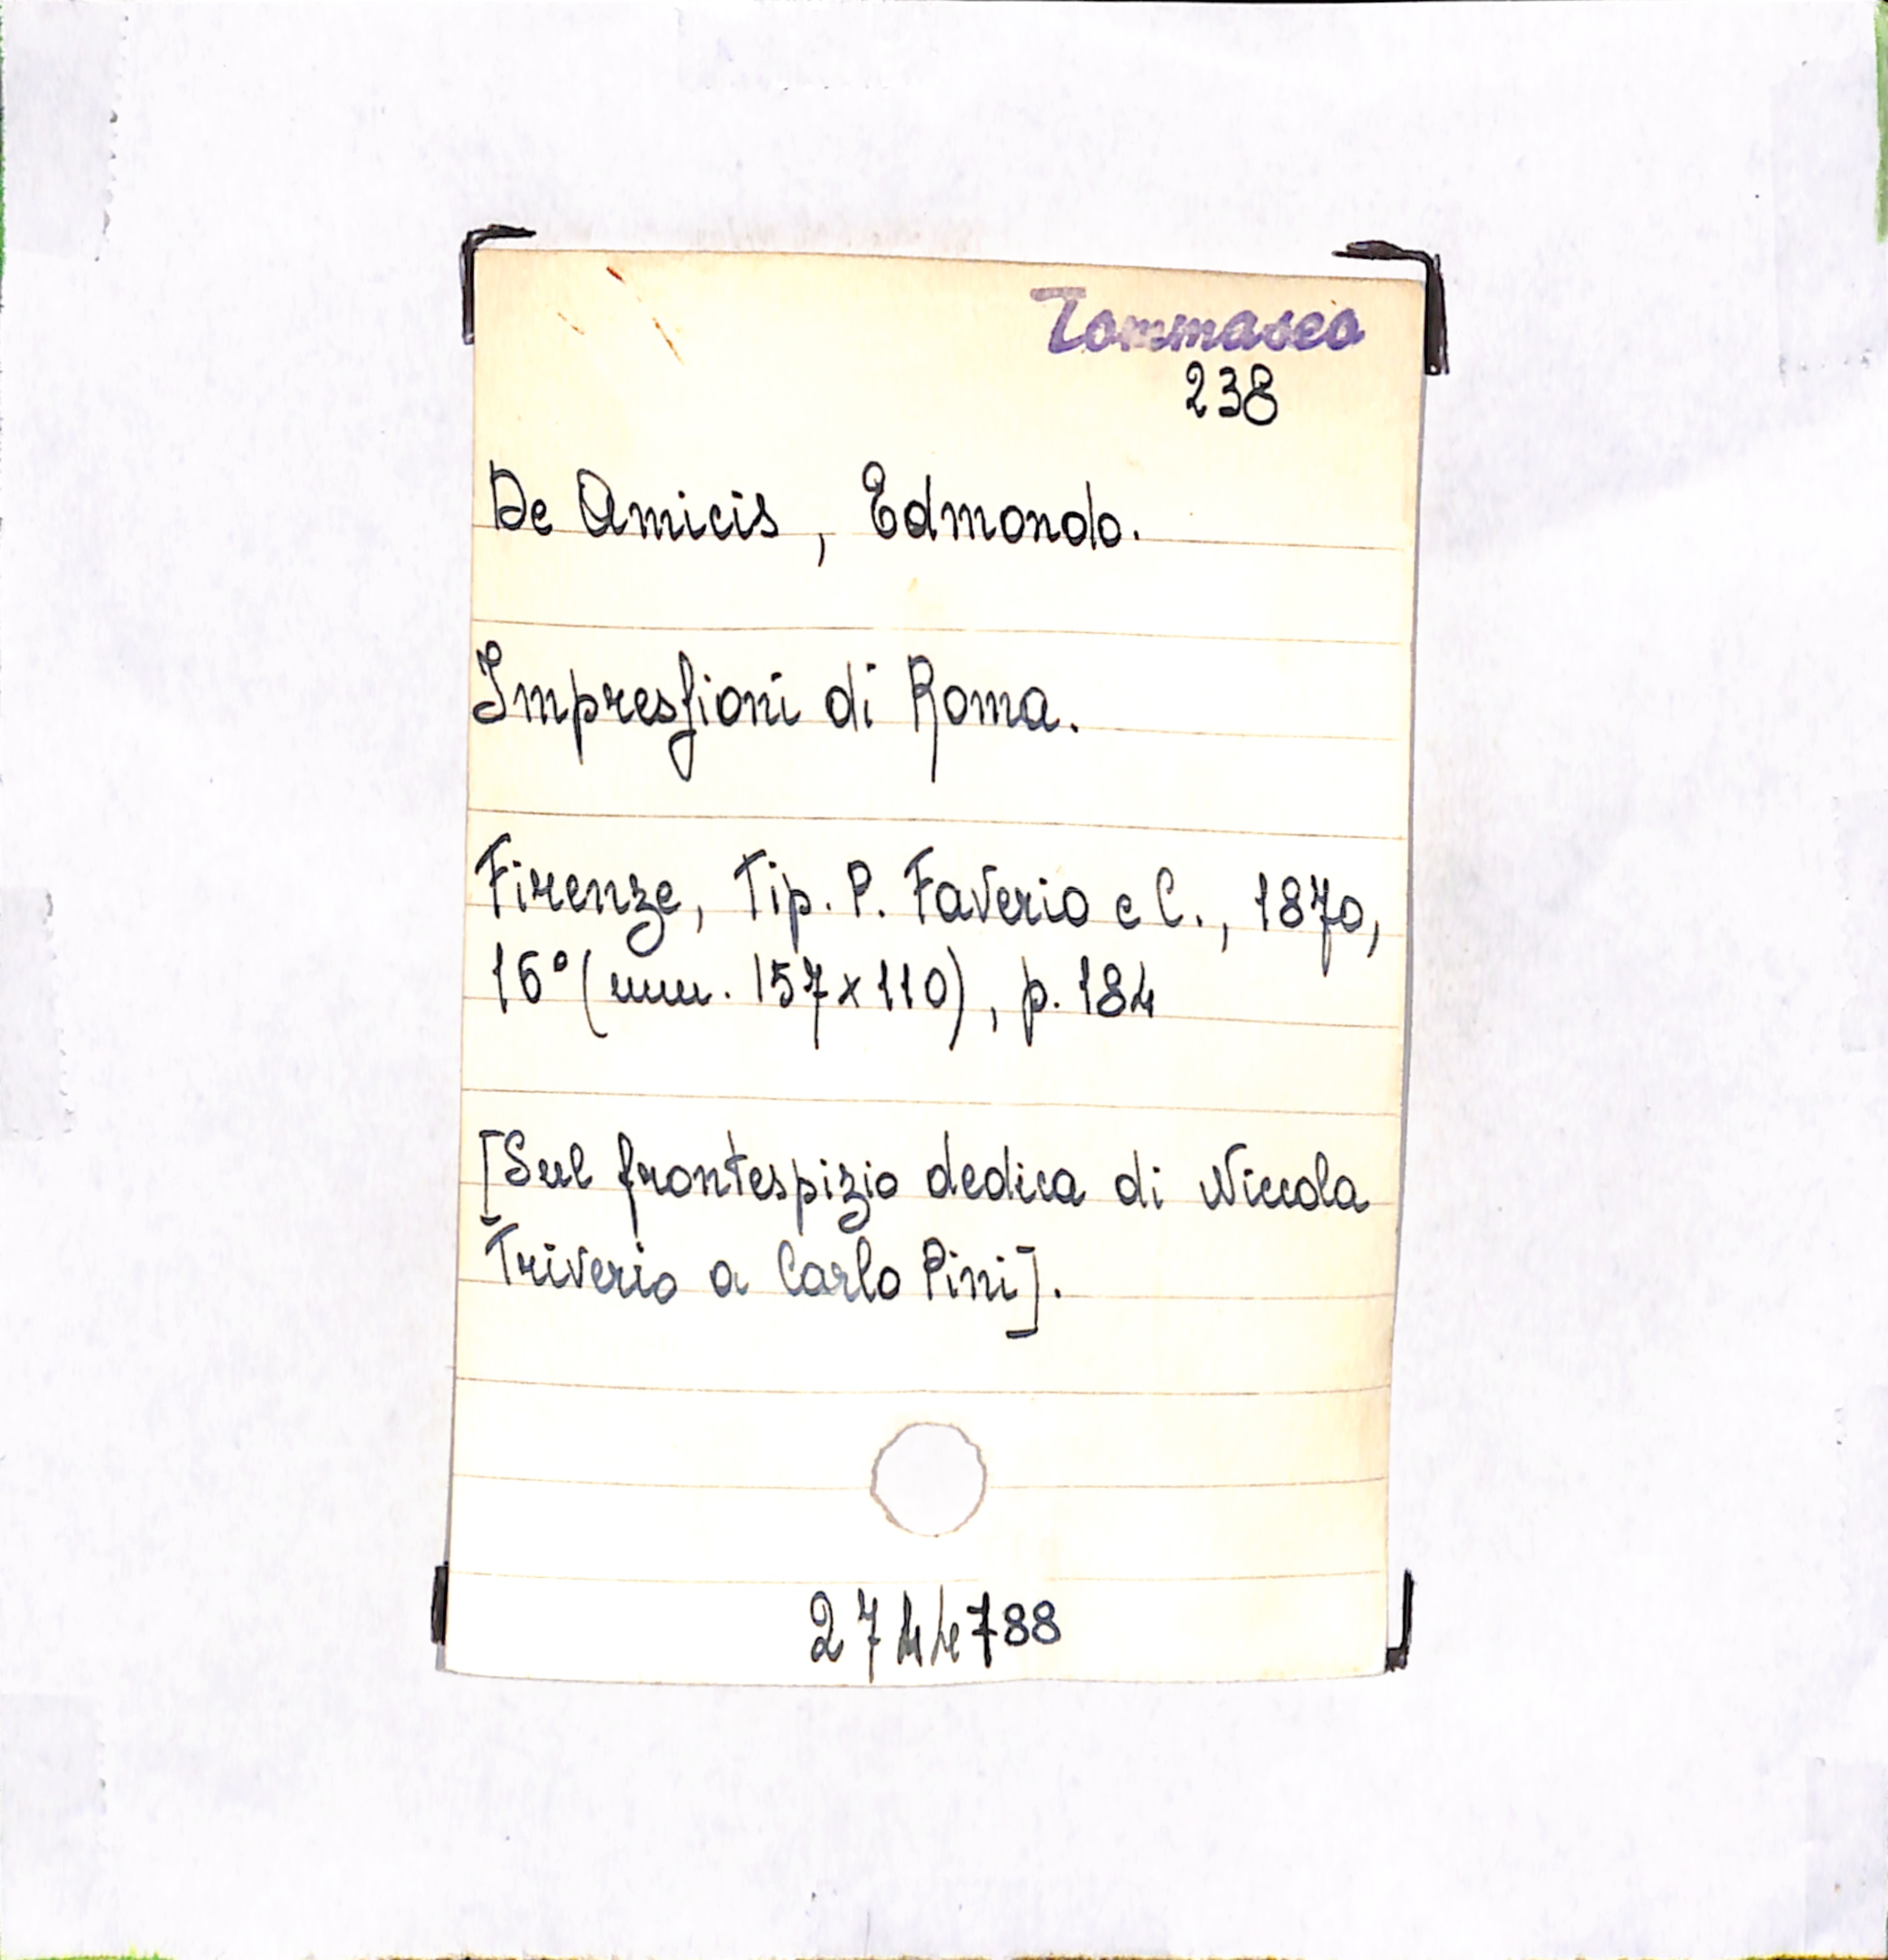 Tommaseo
238
De Amicis, Edmondo.
Impressioni di Roma.
Firenze, Tip. P. Faverio e C., 1870,
16° (mm. 157x110), p. 184
[Sul frontespizio dedica di Niccola
Triverio a Carlo Pini].
2744788